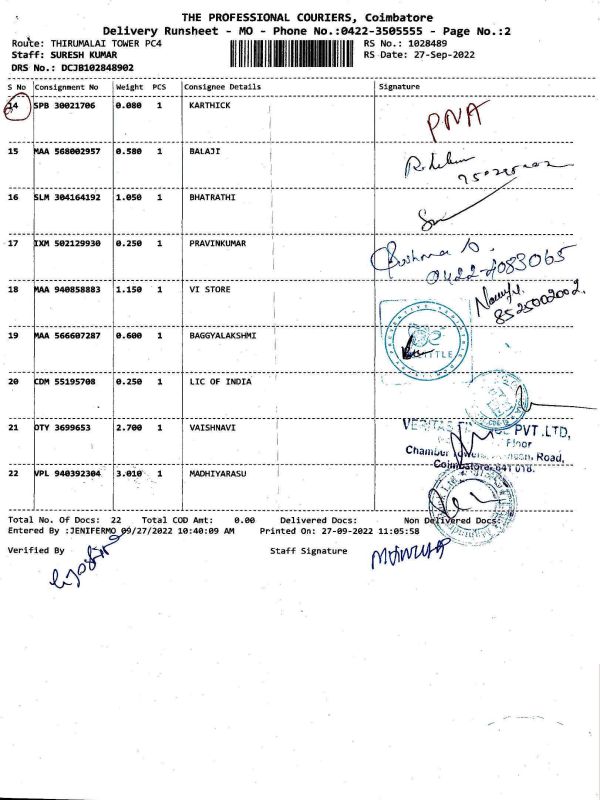 THE PROFESSIONAL COURIERS, Coimbatore
Delivery Runsheet - MO - Phone No.:0422-3505555 - Page No.:2
Route: THIRUMALAI TOWER PC4 RS No.: 1028489
Staff: SURESH KUMAR RS Date: 27-Sep-2022
DRS No.: DCJB102848902
S No Consignment No Weight PCS Consignee Details Signature
14 SPB 30021706 0.080 1 KARTHICK PNA
15 MAA 568002957 0.580 1 BALAJI
16 SLM 304164192 1.050 1 BHATRATHI
17 IXM 502129930 0.250 1 PRAVINKUMAR
0422-4083065
18 MAA 940858883 1.150 1 VI STORE
8525002002.
19 MAA 566607287 0.600 1 BAGGYALAKSHMI
20 CDM 55195708 0.250 1 LIC OF INDIA
21 OTY 3699653 2.700 1 VAISHNAVI
VERITAS PVT.LTD,
Floor
Chamber Road,
Coimbatore-641 018.
22 VPL 940392304 3.010 1 MADHIYARASU
Total No. Of Docs: 22 Total COD Amt: 0.00 Delivered Docs: Non Delivered Docs:
Entered By :JENIFERMO 09/27/2022 10:40:09 AM Printed On: 27-09-2022 11:05:58
Verified By Staff Signature